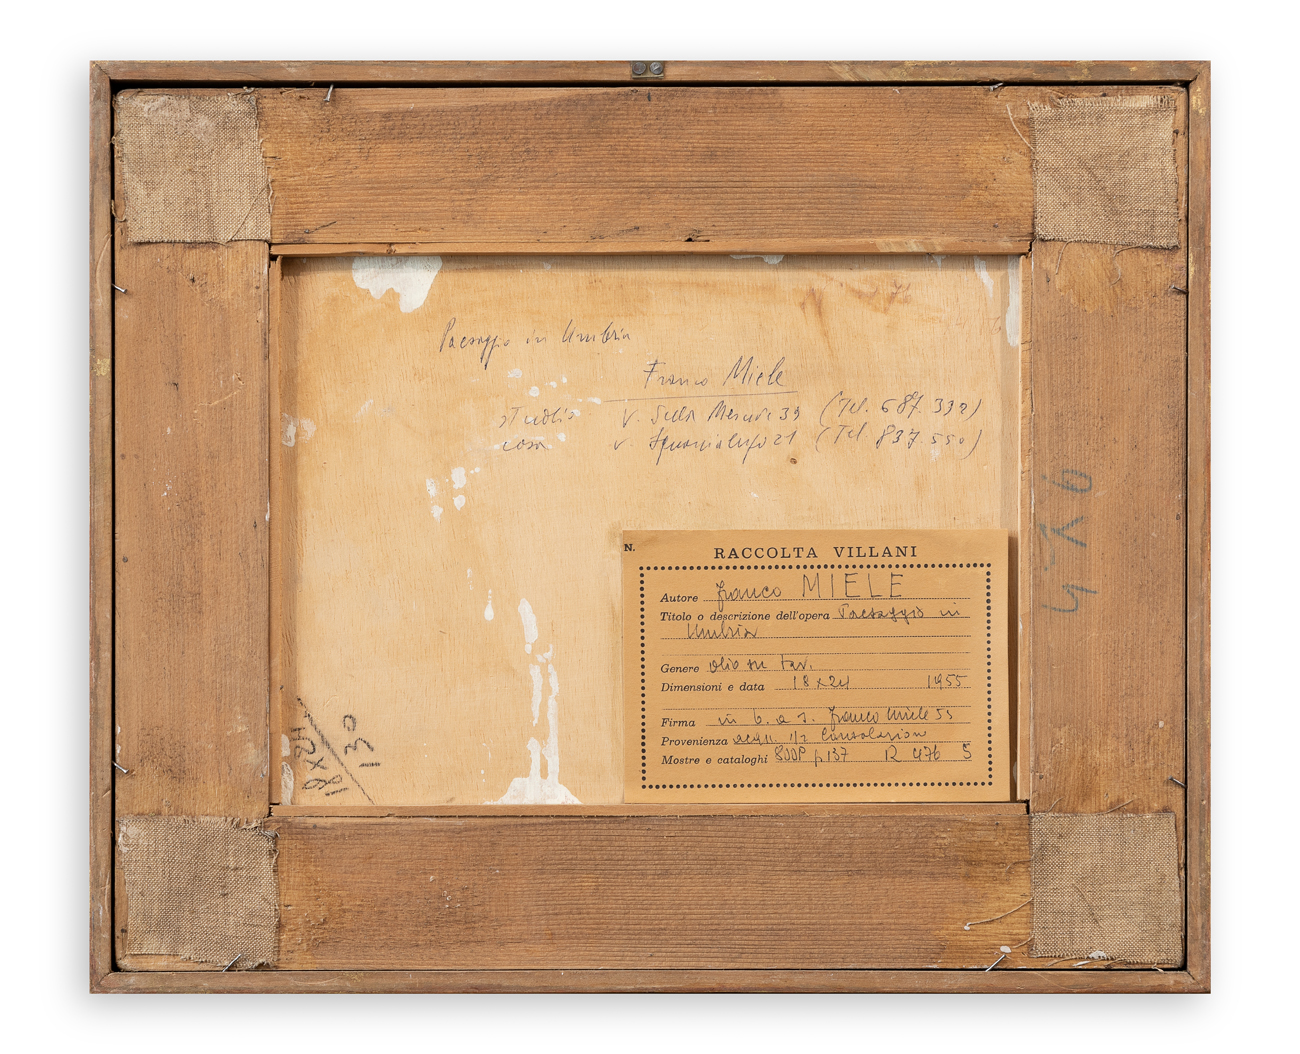 Paesaggio in Umbria
Franco Miele
studio V. Silla Mercuri 39 (Tel. 687.332)
casa v. (Tel. 837.550)
476
18x24
130
N.
RACCOLTA VILLANI
Autore Franco MIELE
Titolo o descrizione dell'opera Paesaggio in
Umbria
Genere olio su tav.
Dimensioni e data 18x24 1955
Firma in b. a s. Franco Miele 55
Provenienza acqu. Consolazione
Mostre e cataloghi 800P p 137 R 476 5